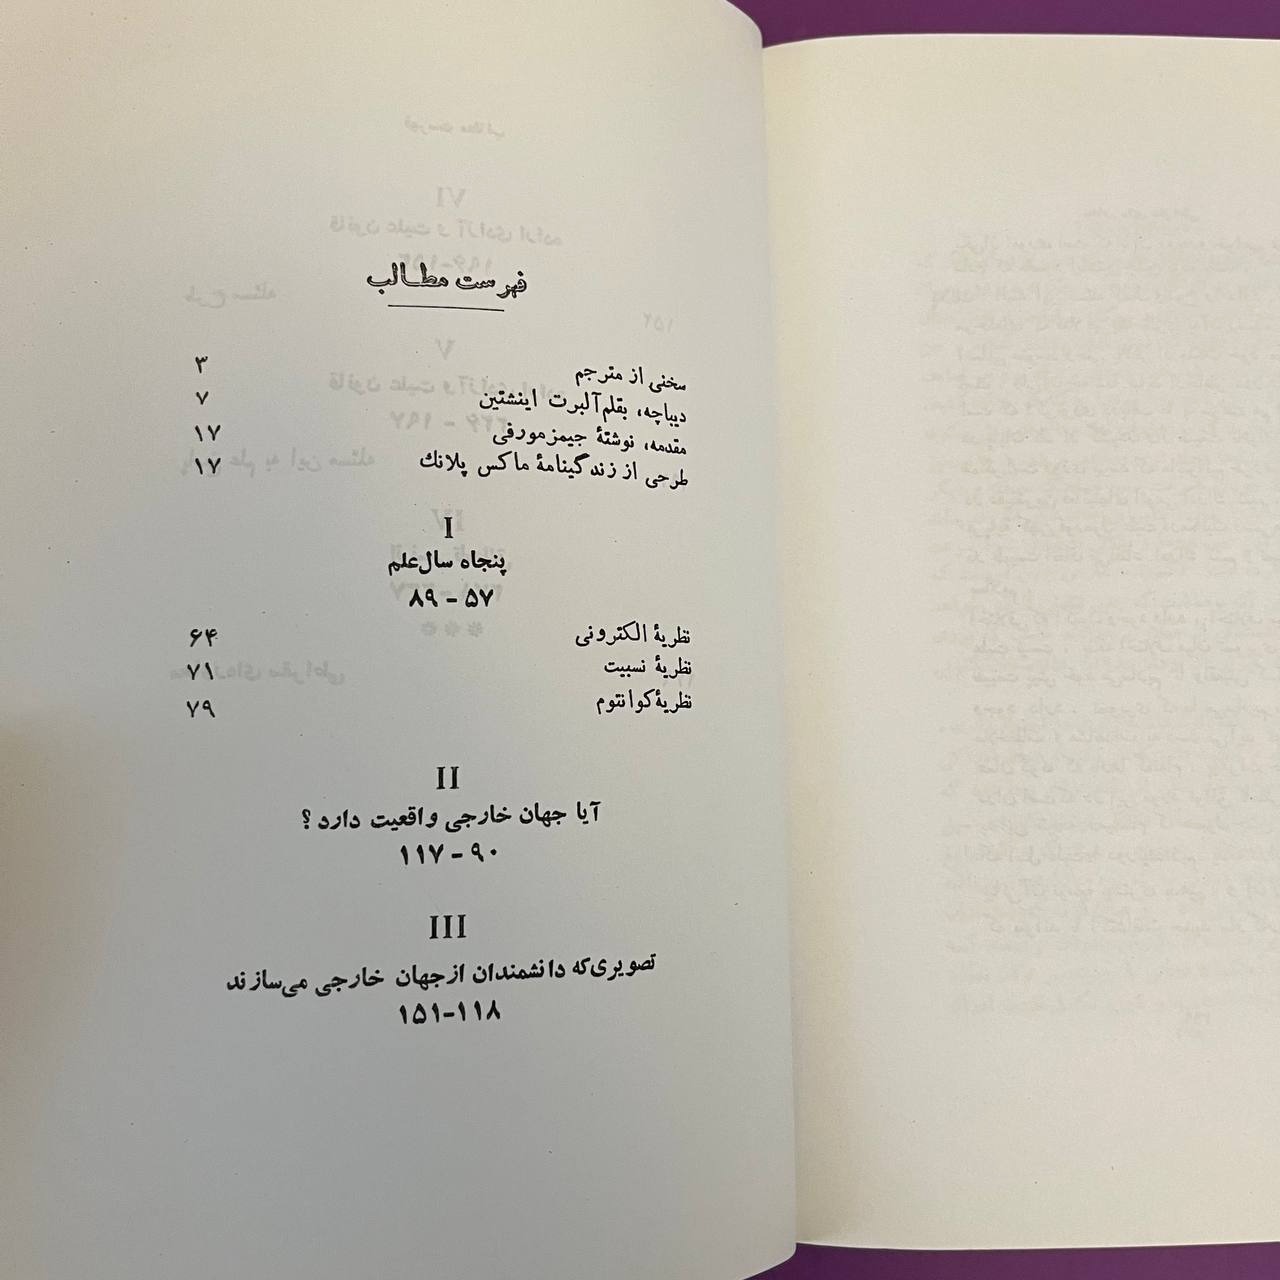 فهرست مطالب
سخنی از مترجم ۳
دیباچه، بقلم آلبرت اینشتین ۷
مقدمه، نوشتهٔ جیمز مورفی ۱۷
طرحی از زندگینامهٔ ماکس پلانک ۱۷
I
پنجاه سال علم
۵۷ - ۸۹
نظریهٔ الکترونی ۶۴
نظریهٔ نسبیت ۷۱
نظریهٔ کوانتوم ۷۹
II
آیا جهان خارجی واقعیت دارد؟
۹۰ - ۱۱۷
III
تصویری که دانشمندان از جهان خارجی می‌سازند
۱۱۸-۱۵۱